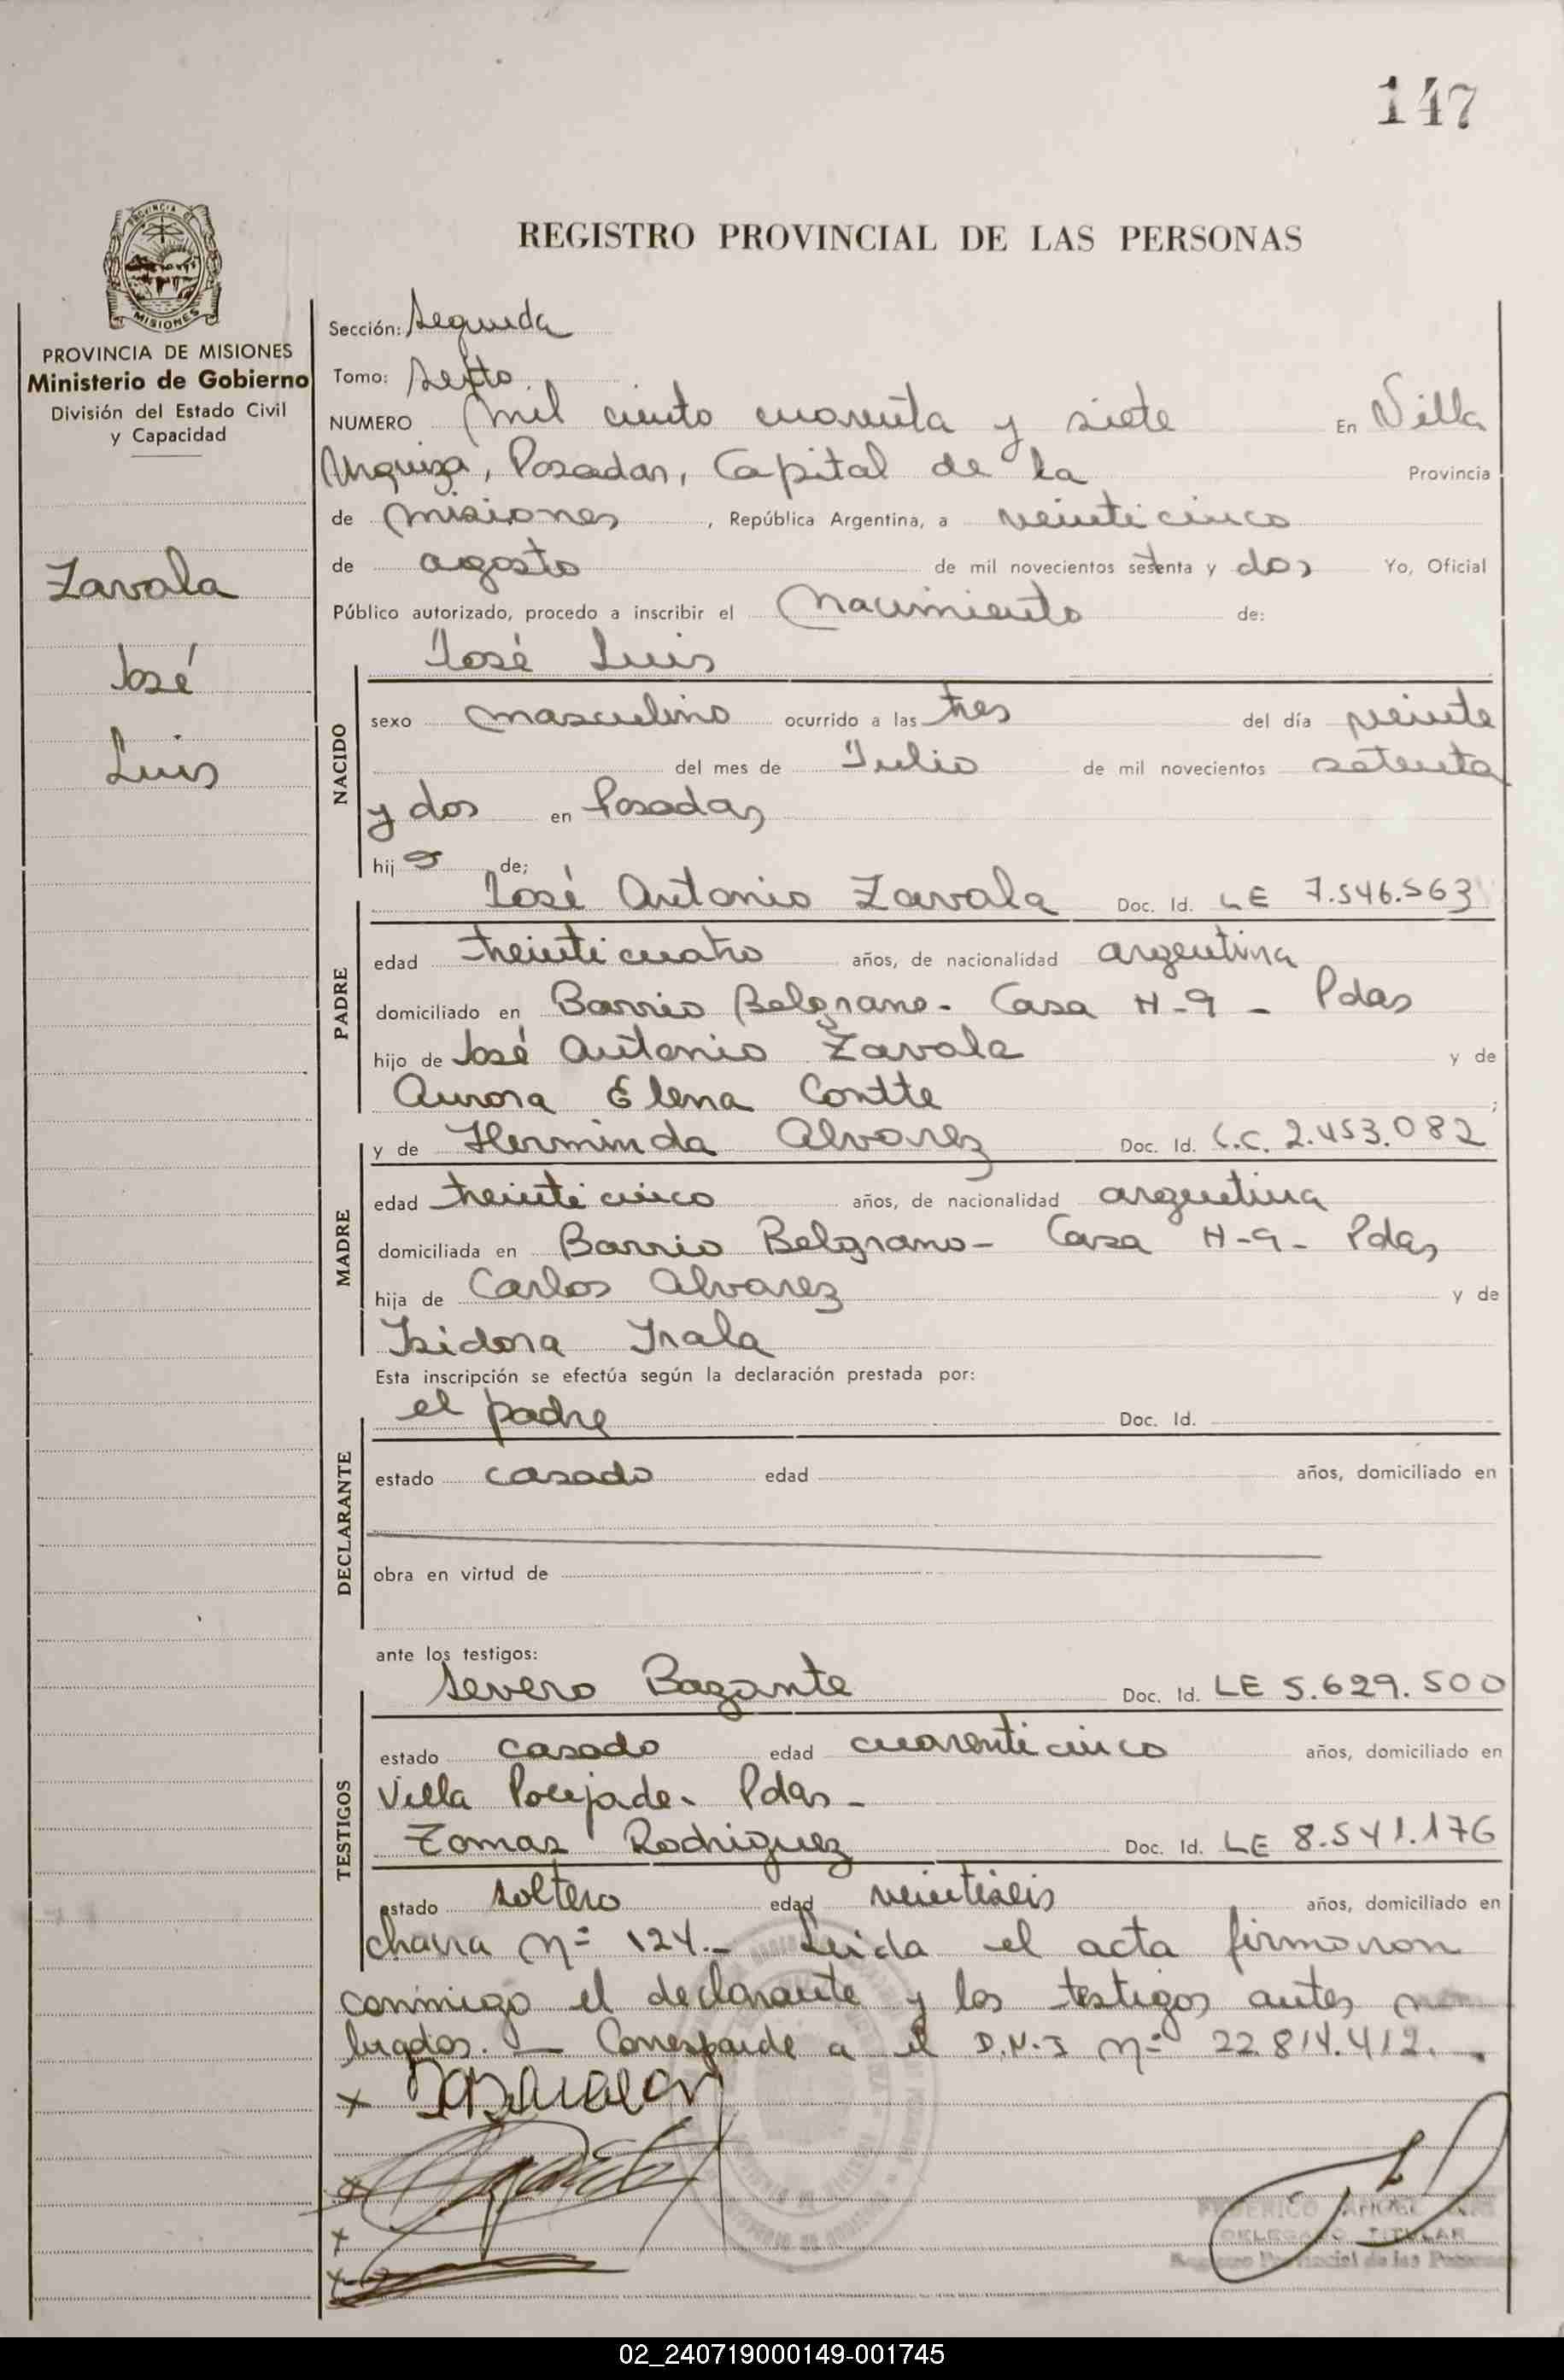 147
REGISTRO PROVINCIAL DE LAS PERSONAS
PROVINCIA DE MISIONES
Ministerio de Gobierno
División del Estado Civil
y Capacidad
Zavala
José
Luis
Sección: Segunda
Tomo: Sexto
NUMERO mil ciento cuarenta y siete En Villa
Urquiza, Posadas, Capital de la Provincia
de misiones, República Argentina, a veinticinco
de agosto de mil novecientos setenta y dos Yo, Oficial
Público autorizado, procedo a inscribir el Nacimiento de:
José Luis
NACIDO
sexo masculino ocurrido a las tres del día veinte
del mes de Julio de mil novecientos setenta
y dos en Posadas
hijo de;
PADRE
José Antonio Zavala Doc. Id. LE 7.546.563
edad treinticuatro años, de nacionalidad argentina
domiciliado en Barrio Belgrano - Casa H-9 - Pdas
hijo de José Antonio Zavala y de
Aurora Elena Contte;
MADRE
y de Herminda Alvarez Doc. Id. L.C. 2.453.082
edad treinticinco años, de nacionalidad argentina
domiciliada en Barrio Belgrano - Casa H-9 - Pdas
hija de Carlos Alvarez y de
Isidora Irala
Esta inscripción se efectúa según la declaración prestada por:
DECLARANTE
el padre Doc. Id.
estado casado edad años, domiciliado en
obra en virtud de
ante los testigos:
TESTIGOS
Severo Bazante Doc. Id. LE 5.629.500
estado casado edad cuarenticinco años, domiciliado en
Villa Pdas -
Tomas Rodriguez Doc. Id. LE 8.541.176
estado soltero edad veintiséis años, domiciliado en
chacra Nº 124.- Leida el acta firmaron
conmigo el declarante y los testigos antes
brados. - Corresponde a el D.N.I Nº 22.814.412.
DELEGADO TITULAR
Registro Provincial de las Personas
02_240719000149-001745